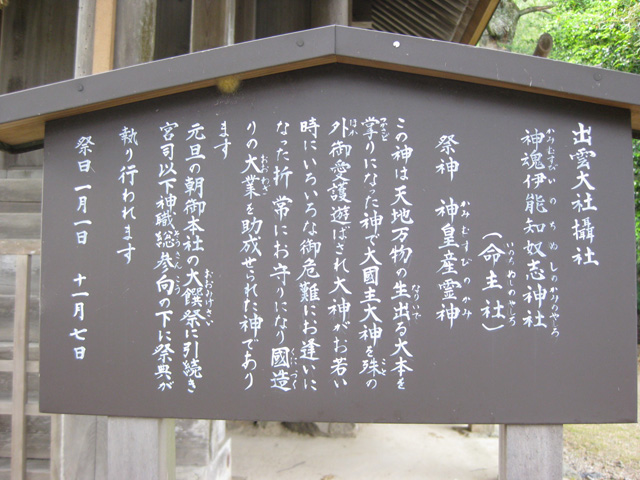 出雲大社攝社
神魂伊能知奴志神社
かみむすびいのちぬしのかみのやしろ
（命主社）
いのちぬしのやしろ
祭神 神皇産霊神
かみむすびのかみ
この神は天地万物の生出る大本を
掌りになった神で大國主大神を殊の
外御愛護遊ばされ大神がお若い
時にいろいろな御危難にお逢いに
なった折常にお守りになり國造
りの大業を助成せられた神であり
ます
元旦の朝御本社の大饌祭に引続き
宮司以下神職総参向の下に祭典が
執り行われます
祭日 一月一日 十一月七日